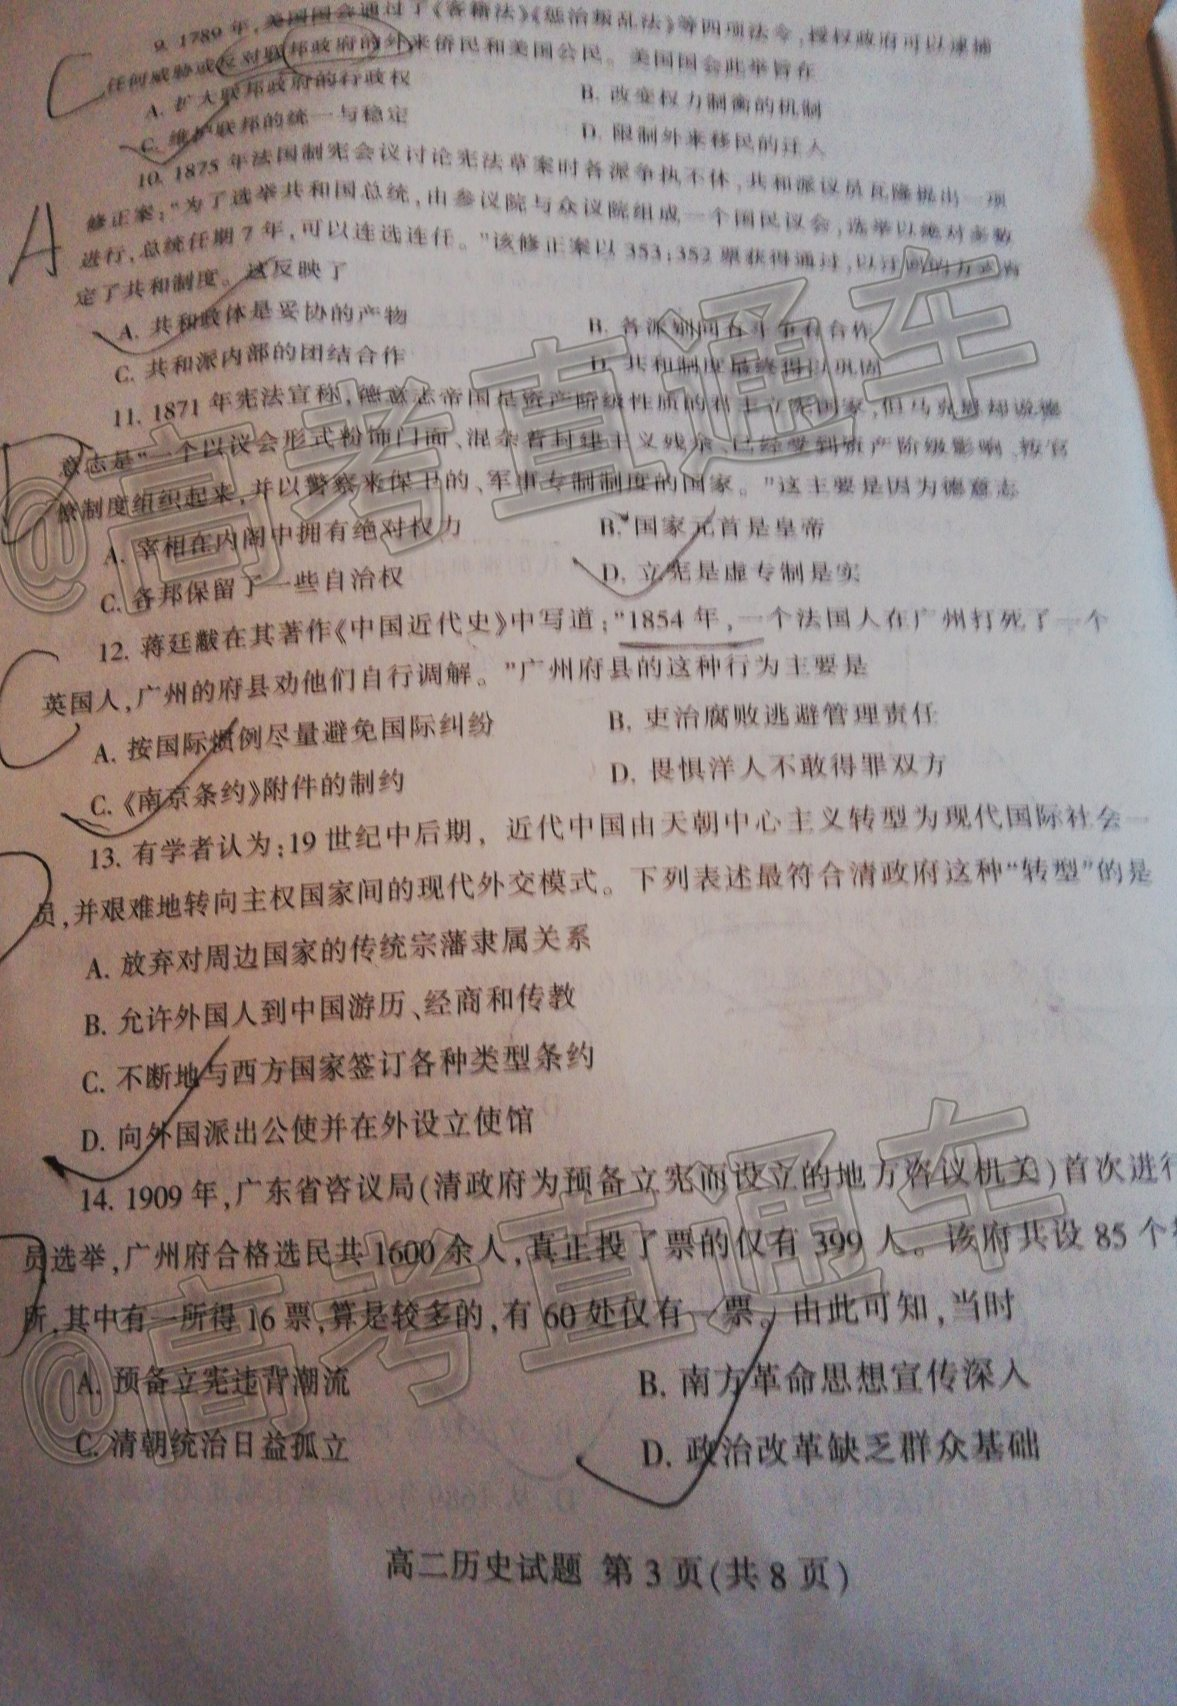 9. 1789 年，美国国会通过了《客籍法》《惩治叛乱法》等四项法令，授权政府可以逮捕
任何威胁或反对联邦政府的外来侨民和美国公民。美国国会此举旨在
A. 扩大联邦政府的行政权
B. 改变权力制衡的机制
C. 维护联邦的统一与稳定
D. 限制外来移民的迁入
C
10. 1875 年法国制宪会议讨论宪法草案时各派争执不休，共和派议员瓦隆提出一项
修正案："为了选举共和国总统，由参议院与众议院组成一个国民议会，选举以绝对多数
进行，总统任期 7 年，可以连选连任。"该修正案以 353:352 票获得通过，以
定了共和制度。这反映了
A
A. 共和政体是妥协的产物
B. 各派别间有斗争有合作
C. 共和派内部的团结合作
D. 共和制度最终得以巩固
11. 1871 年宪法宣称，德意志帝国是资产阶级性质的君主立宪国家，但马克思却说德
意志是"一个以议会形式粉饰门面、混杂着封建主义残余、已经受到资产阶级影响、按官
僚制度组织起来，并以警察来保卫的、军事专制制度的国家。"这主要是因为德意志
D
A. 宰相在内阁中拥有绝对权力
B. 国家元首是皇帝
C. 各邦保留了一些自治权
D. 立宪是虚专制是实
12. 蒋廷黻在其著作《中国近代史》中写道："1854 年，一个法国人在广州打死了一个
英国人，广州的府县劝他们自行调解。"广州府县的这种行为主要是
C
A. 按国际惯例尽量避免国际纠纷
B. 吏治腐败逃避管理责任
C.《南京条约》附件的制约
D. 畏惧洋人不敢得罪双方
13. 有学者认为：19 世纪中后期，近代中国由天朝中心主义转型为现代国际社会一
员，并艰难地转向主权国家间的现代外交模式。下列表述最符合清政府这种"转型"的是
A. 放弃对周边国家的传统宗藩隶属关系
B. 允许外国人到中国游历、经商和传教
C. 不断地与西方国家签订各种类型条约
D. 向外国派出公使并在外设立使馆
14. 1909 年，广东省咨议局(清政府为预备立宪而设立的地方咨议机关)首次进行
员选举，广州府合格选民共 1600 余人，真正投了票的仅有 399 人。该府共设 85 个
所，其中有一所得 16 票，算是较多的，有 60 处仅有一票。由此可知，当时
A. 预备立宪违背潮流
B. 南方革命思想宣传深入
C. 清朝统治日益孤立
D. 政治改革缺乏群众基础
高二历史试题 第 3 页(共 8 页)
@高考直通车
@高考直通车